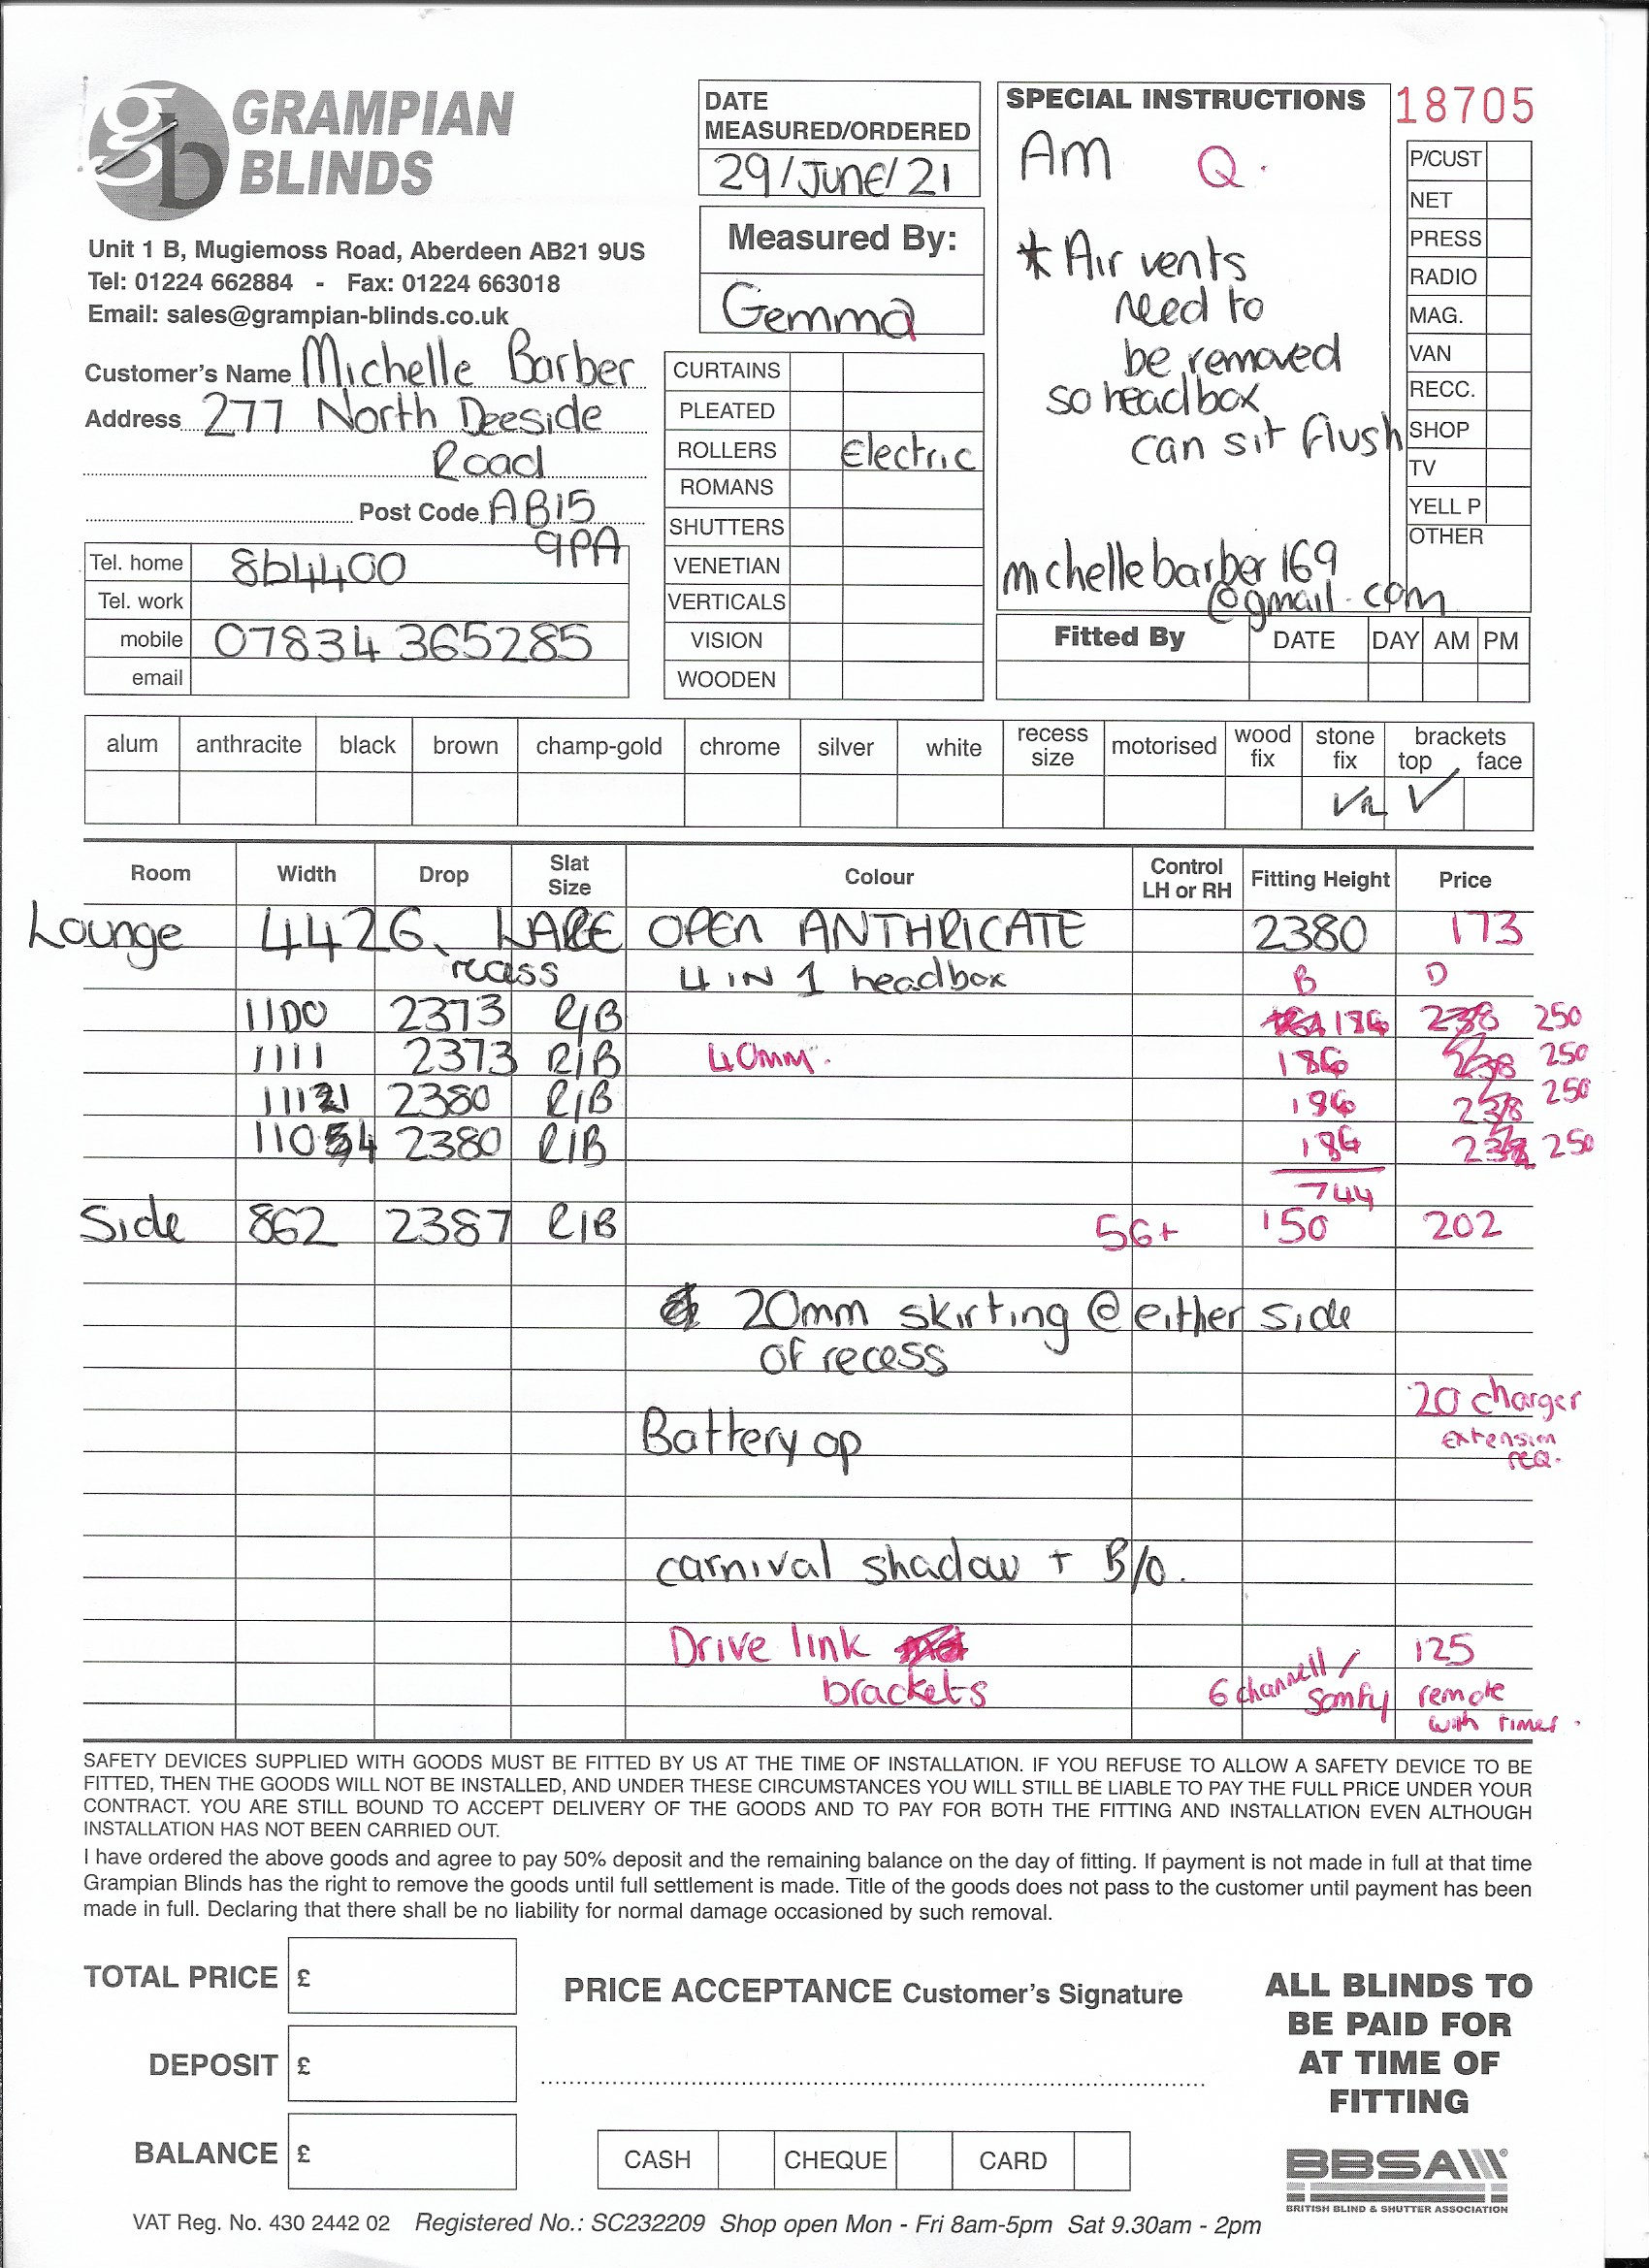 GRAMPIAN
BLINDS
Unit 1 B, Mugiemoss Road, Aberdeen AB21 9US
Tel: 01224 662884 - Fax: 01224 663018
Email: sales@grampian-blinds.co.uk
Customer's Name Michelle Barber
Address 277 North Deeside
Road
Post Code AB15
9PA
Tel. home 864400
Tel. work
mobile 07834 365285
email
DATE
MEASURED/ORDERED
29/June/21
Measured By:
Gemma
CURTAINS
PLEATED
ROLLERS Electric
ROMANS
SHUTTERS
VENETIAN
VERTICALS
VISION
WOODEN
SPECIAL INSTRUCTIONS
Am Q.
* Air vents
need to
be removed
so headbox
can sit flush
michellebarber169
@gmail.com
18705
P/CUST
NET
PRESS
RADIO
MAG.
VAN
RECC.
SHOP
TV
YELL P
OTHER
Fitted By DATE DAY AM PM
alum anthracite black brown champ-gold chrome silver white recess size motorised wood fix stone fix brackets top face
Room Width Drop Slat Size Colour Control LH or RH Fitting Height Price
Lounge 4426 OPEN ANTHRICATE 2380 173
recess 4 IN 1 headbox B D
1100 2373 R/B 186 238 250
1111 2373 R/B 40mm. 186 238 250
2380 R/B 186 238 250
2380 R/B 186 250
744
Side 862 2387 R/B 56+ 150 202
20mm skirting @ either side
of recess
20 charger
Battery op extension
req.
carnival shadow + B/O.
Drive link 125
brackets 6 channell / Somfy remote
with timer.
SAFETY DEVICES SUPPLIED WITH GOODS MUST BE FITTED BY US AT THE TIME OF INSTALLATION. IF YOU REFUSE TO ALLOW A SAFETY DEVICE TO BE
FITTED, THEN THE GOODS WILL NOT BE INSTALLED, AND UNDER THESE CIRCUMSTANCES YOU WILL STILL BE LIABLE TO PAY THE FULL PRICE UNDER YOUR
CONTRACT. YOU ARE STILL BOUND TO ACCEPT DELIVERY OF THE GOODS AND TO PAY FOR BOTH THE FITTING AND INSTALLATION EVEN ALTHOUGH
INSTALLATION HAS NOT BEEN CARRIED OUT.
I have ordered the above goods and agree to pay 50% deposit and the remaining balance on the day of fitting. If payment is not made in full at that time
Grampian Blinds has the right to remove the goods until full settlement is made. Title of the goods does not pass to the customer until payment has been
made in full. Declaring that there shall be no liability for normal damage occasioned by such removal.
TOTAL PRICE £
DEPOSIT £
BALANCE £
PRICE ACCEPTANCE Customer's Signature
CASH CHEQUE CARD
ALL BLINDS TO
BE PAID FOR
AT TIME OF
FITTING
BBSA
BRITISH BLIND & SHUTTER ASSOCIATION
VAT Reg. No. 430 2442 02 Registered No.: SC232209 Shop open Mon - Fri 8am-5pm Sat 9.30am - 2pm